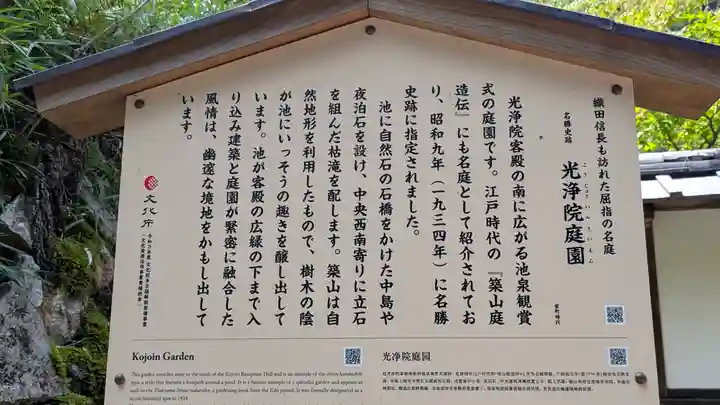 織田信長も訪れた屈指の名庭
名勝史跡 光浄院庭園
こうじょういんていえん
室町時代
光浄院客殿の南に広がる池泉観賞
式の庭園です。江戸時代の『築山庭
造伝』にも名庭として紹介されてお
り、昭和九年（一九三四年）に名勝
史跡に指定されました。
池に自然石の石橋をかけた中島や
夜泊石を設け、中央西南寄りに立石
を組んだ枯滝を配します。築山は自
然地形を利用したもので、樹木の陰
が池にいっそうの趣きを醸し出して
います。池が客殿の広縁の下まで入
り込み建築と庭園が緊密に融合した
風情は、幽邃な境地をかもし出して
います。
文化庁
Kojoin Garden
This garden stretches away to the south of the Kojoin Reception Hall and is an example of the chisen kanshoshiki
光净院庭园